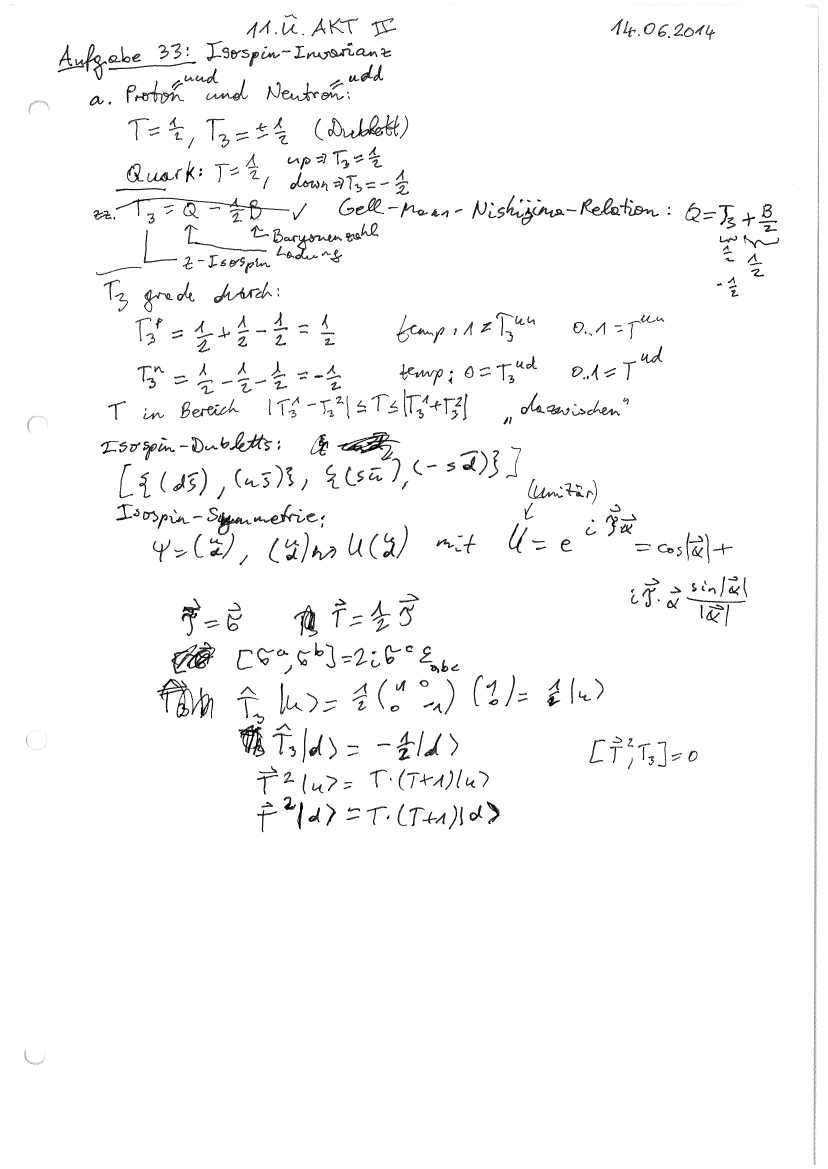 11.Ü. AKT IV 14.06.2014
Aufgabe 33: Isospin-Invarianz
≙uud ≙udd
a. Proton und Neutron:
T=1/2, T₃=±1/2 (Dublett)
Quark: T=1/2, up⇒T₃=1/2
down⇒T₃=-1/2
zz. T₃ = Q - 1/2 B ✓ Gell-Mann-Nishijima-Relation: Q=T₃+B/2
Baryonenzahl 1/2 1/2
z-Isospin Ladung -1/2
T₃ grade durch:
T₃ᵖ = 1/2 + 1/2 - 1/2 = 1/2 temp: 1 = T₃ᵘᵘ 0..1 = Tᵘᵘ
T₃ⁿ = 1/2 - 1/2 - 1/2 = -1/2 temp: 0 = T₃ᵘᵈ 0..1 = Tᵘᵈ
T in Bereich |T₃¹-T₃²| ≤ T ≤ |T₃¹+T₃²| „dazwischen“
Isospin-Dubletts:
[{(ds̄), (us̄)}, {(sū), (-sd̄)}]
(Unitär)
Isospin-Symmetrie:
Ψ=(u d), (u d) ↝ U(u d) mit U = e^(i τ⃗ α⃗) = cos|α⃗| +
i τ⃗·α⃗ sin|α⃗|/|α⃗|
τ⃗ = σ⃗ T⃗ = 1/2 τ⃗
[σᵃ,σᵇ]=2iσᶜ ε_abc
T̂₃|u⟩ = 1/2 (1 0 0 -1) (1 0) = 1/2|u⟩
T̂₃|d⟩ = -1/2|d⟩ [T⃗²,T₃]=0
T⃗²|u⟩ = T·(T+1)|u⟩
T⃗²|d⟩ = T·(T+1)|d⟩